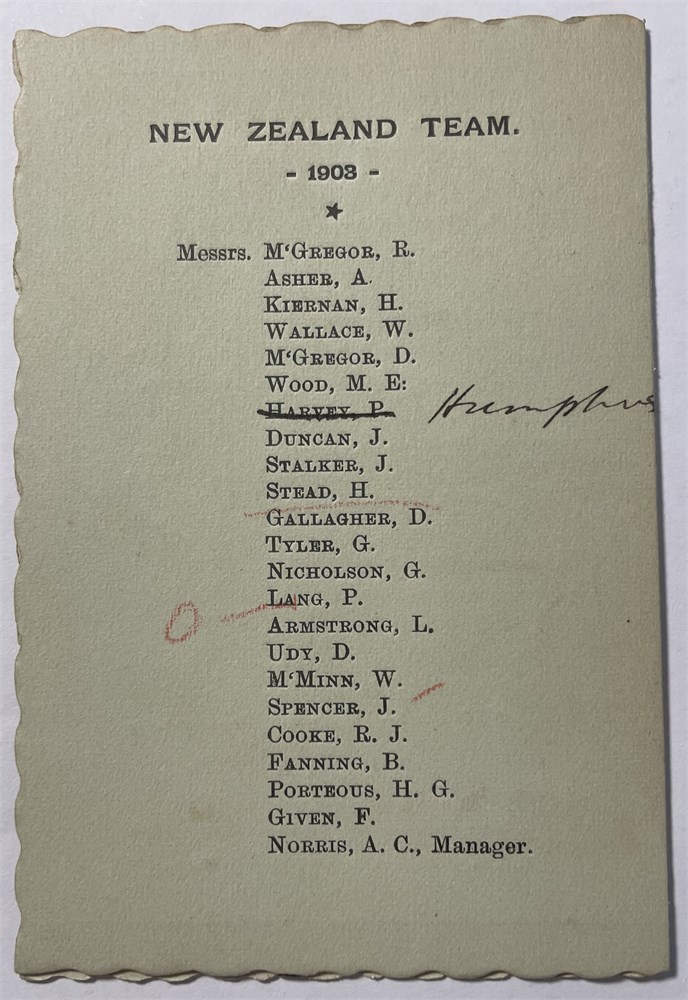 NEW ZEALAND TEAM.
- 1903 -
Messrs. M‘GREGOR, R.
ASHER, A.
KIERNAN, H.
WALLACE, W.
M‘GREGOR, D.
WOOD, M. E:
HARVEY, P. Humphries
DUNCAN, J.
STALKER, J.
STEAD, H.
GALLAGHER, D.
TYLER, G.
NICHOLSON, G.
LANG, P.
ARMSTRONG, L.
UDY, D.
M‘MINN, W.
SPENCER, J.
COOKE, R. J.
FANNING, B.
PORTEOUS, H. G.
GIVEN, F.
NORRIS, A. C., Manager.